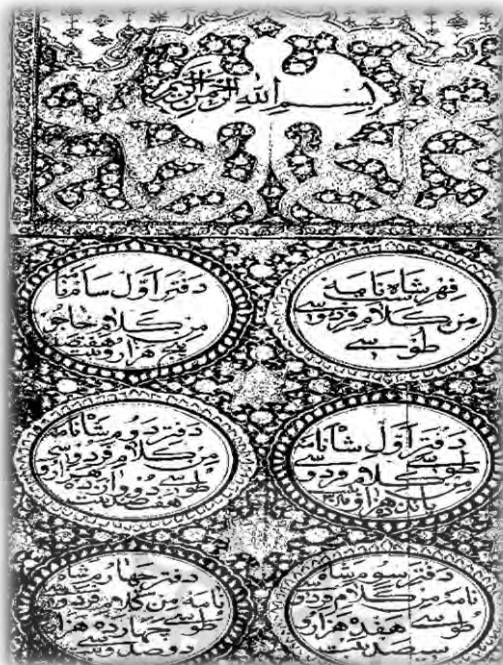 بسم الله الرحمن الرحیم
فهر شاه نامه
من کلام فردوسی
طوسی
دفتر اول سامنا
من کلام خاجو
هزار و بیت
دفتر اول شانامه
من کلام فردوسی
طوسی
دفتر دوم شانامه
من کلام فردوسی
طوسی دووازده هزار و
هفصد بیت
دفتر سوم شاه
نامه من کلام فردو
سی طوسی هفده هزار و
سیصد بیت
دفتر چهارم شاه
نامه من کلام فردو
سی طوسی چهارده هزار
دو صد و بیت